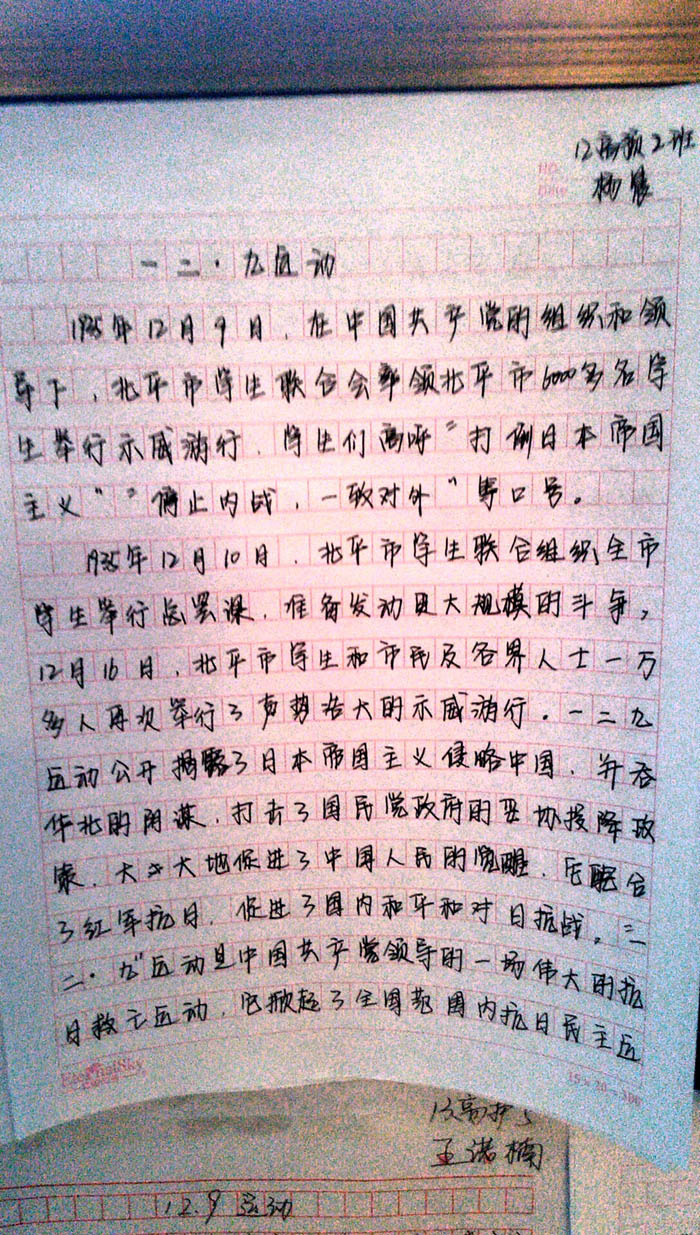 12高预2班
NO.
Date
杨
一二·九运动
1935年12月9日,在中国共产党的组织和领
导下,北平市学生联合会率领北平市6000多名学
生举行示威游行.学生们高呼"打倒日本帝国
主义""停止内战,一致对外"等口号。
1935年12月10日,北平市学生联合组织全市
学生举行总罢课.准备发动更大规模的斗争,
12月16日,北平市学生和市民及各界人士一万
多人再次举行了声势浩大的示威游行.一二九
运动公开揭露了日本帝国主义侵略中国,并吞
华北的阴谋.打击了国民党政府的妥协投降政
策.大大地促进了中国人民的觉醒.配合
了红军抗日.促进了国内和平和对日抗战。"一
二·九"运动是中国共产党领导的一场伟大的抗
日救亡运动.它掀起了全国范围内抗日民主运
15×20=300
12高护5
王诺楠
12.9运动